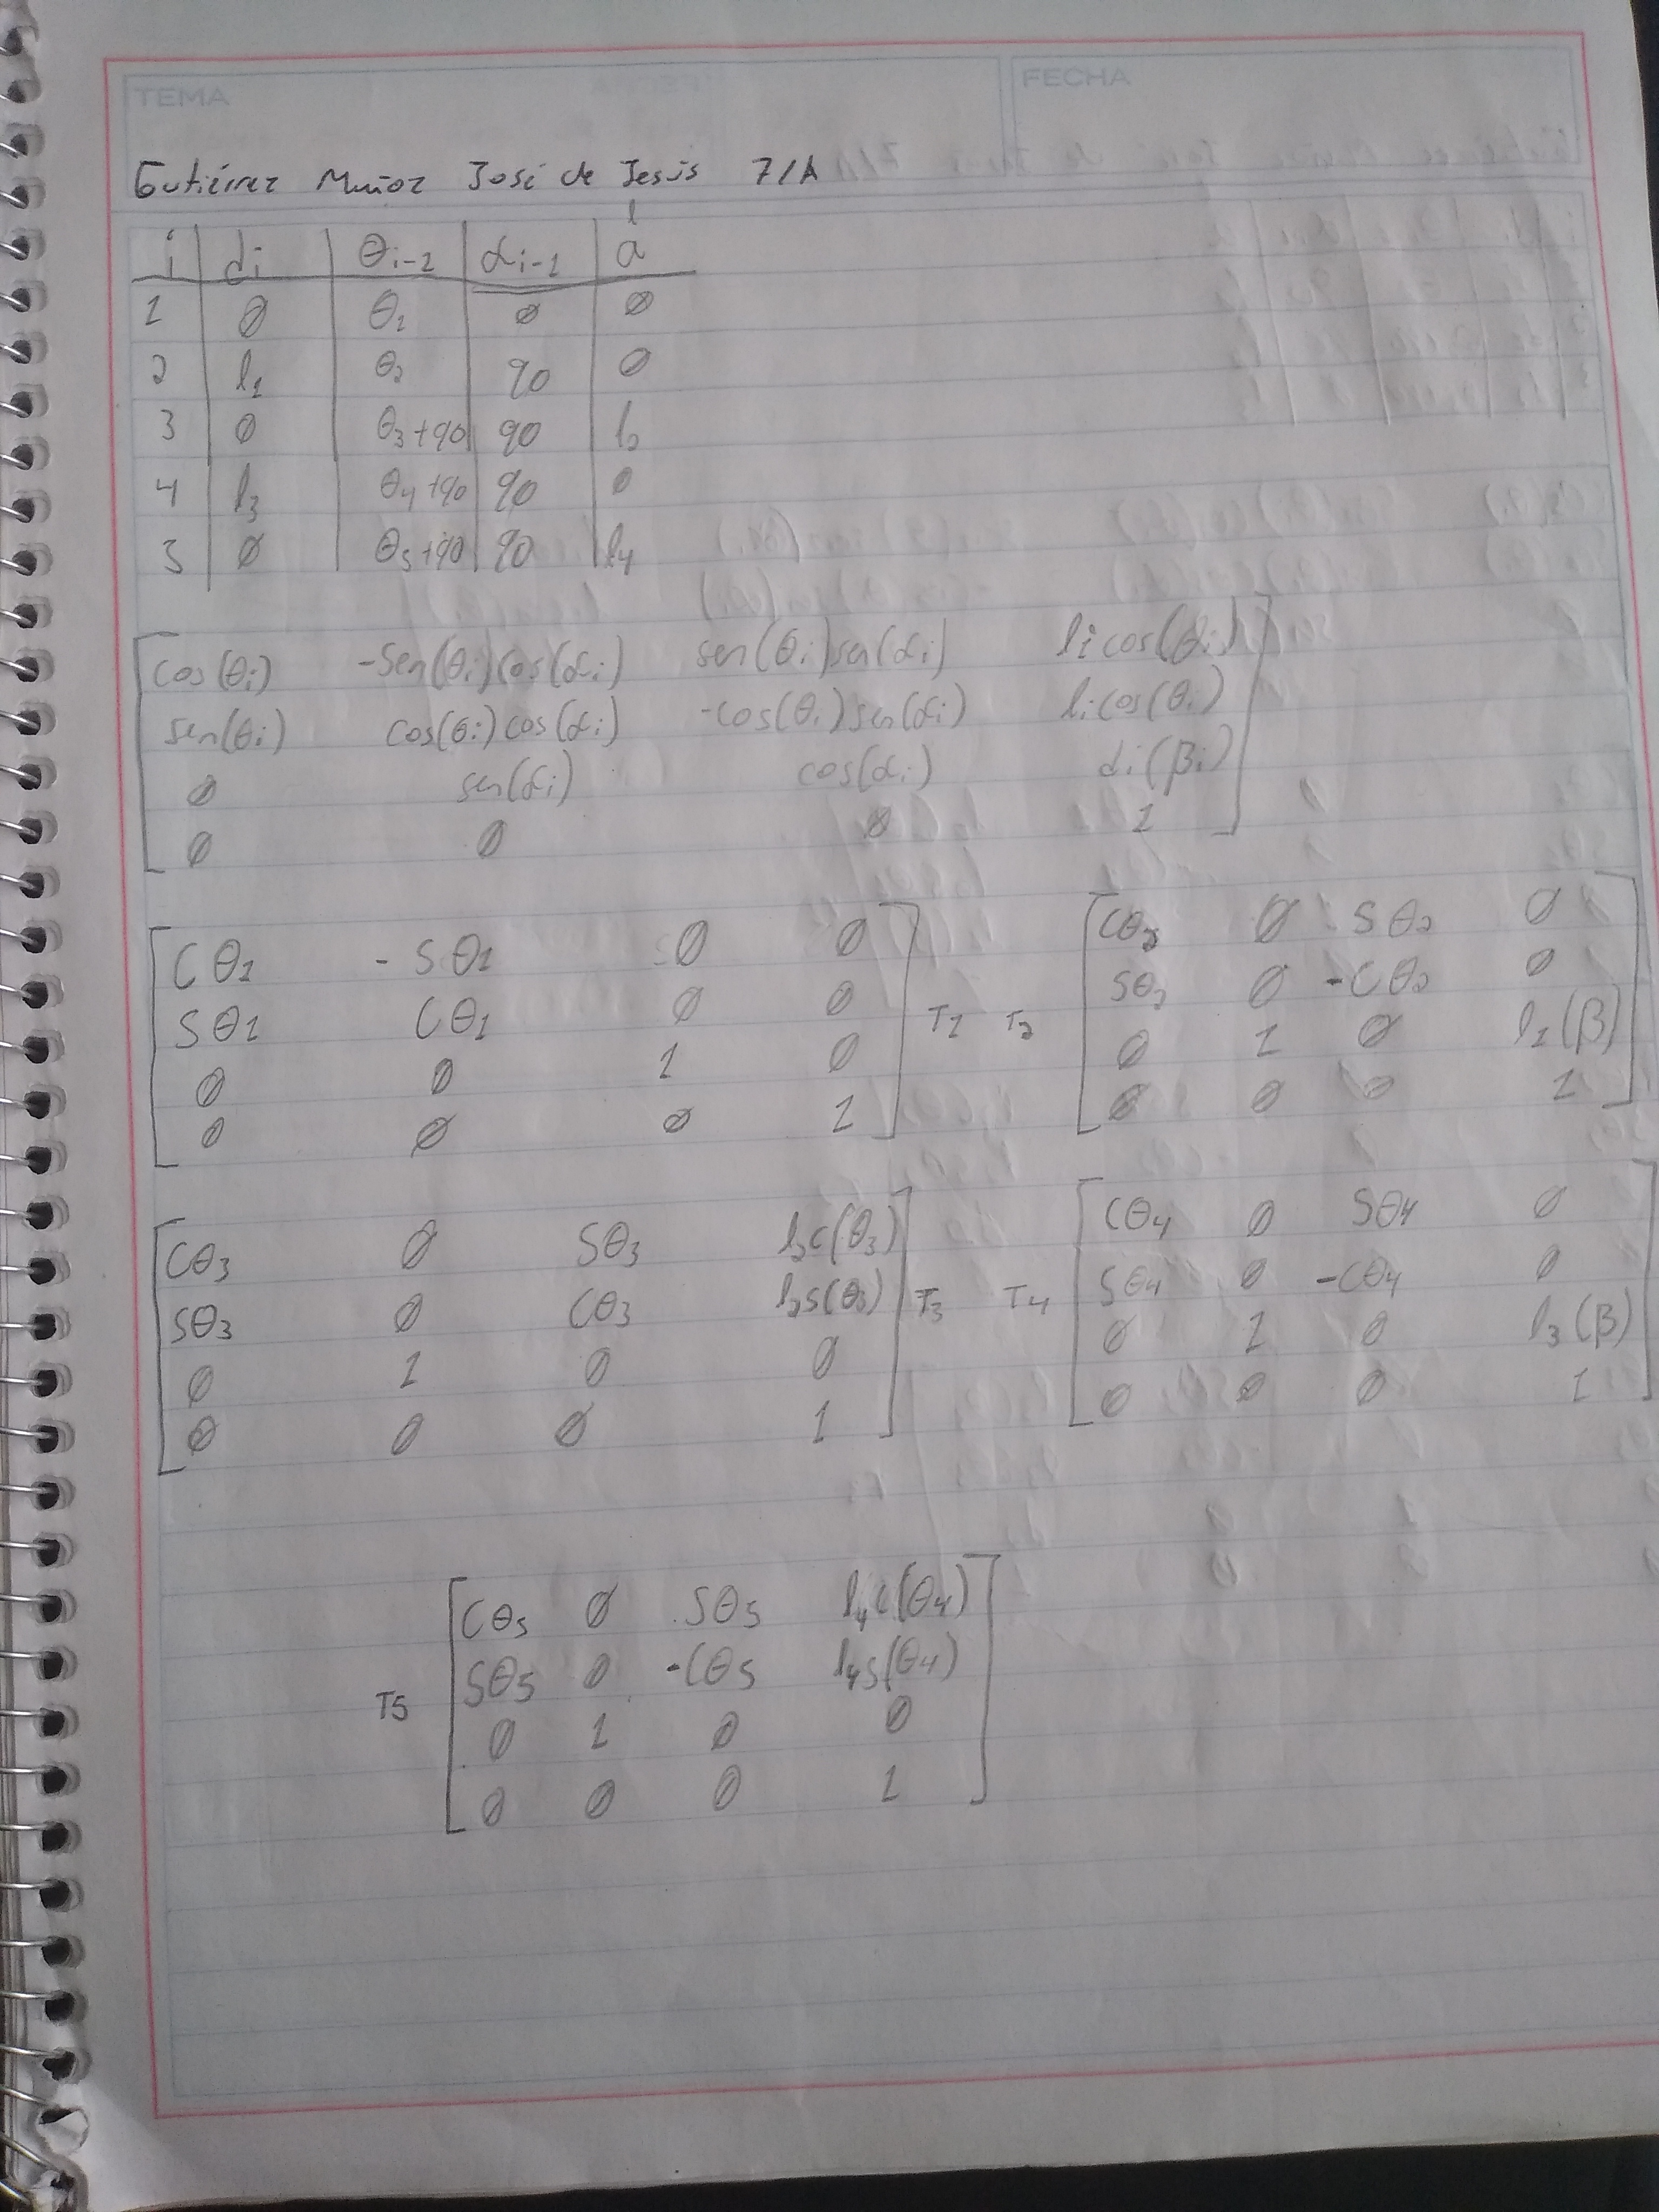 TEMA FECHA
Gutiérrez Muñoz José de Jesús 7/A
l
i di θi-1 αi-1 a
1 0 θ1 0 0
2 l1 θ2 90 0
3 0 θ3+90 90 l2
4 l3 θ4+90 90 0
5 0 θ5+90 90 l4
cos(θi) -sen(θi)cos(αi) sen(θi)sen(αi) licos(θi)
sen(θi) cos(θi)cos(αi) -cos(θi)sen(αi) licos(θi)
0 sen(αi) cos(αi) di(βi)
0 0 0 1
Cθ1 -Sθ1 0 0
Sθ1 Cθ1 0 0
0 0 1 0
0 0 0 1
T1
T2
Cθ2 0 Sθ2 0
Sθ2 0 -Cθ2 0
0 1 0 l1(β)
0 0 0 1
Cθ3 0 Sθ3 l2c(θ3)
Sθ3 0 Cθ3 l2s(θ3)
0 1 0 0
0 0 0 1
T3
T4
Cθ4 0 Sθ4 0
Sθ4 0 -Cθ4 0
0 1 0 l3(β)
0 0 0 1
T5
Cθ5 0 Sθ5 l4c(θ4)
Sθ5 0 -Cθ5 l4s(θ4)
0 1 0 0
0 0 0 1